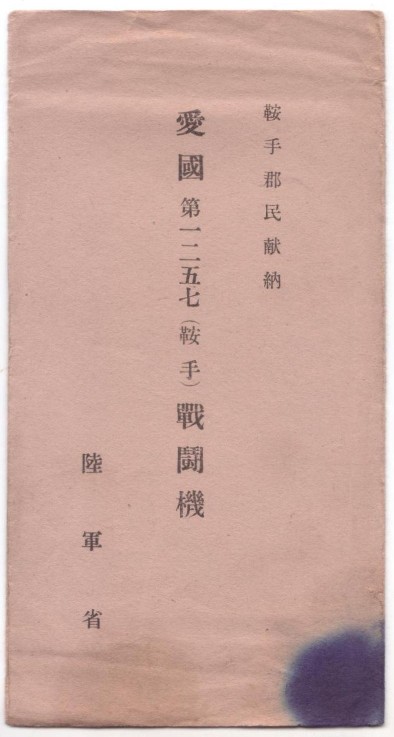 鞍手郡民献納
愛國第一二五七(鞍手)戰鬪機
陸軍省